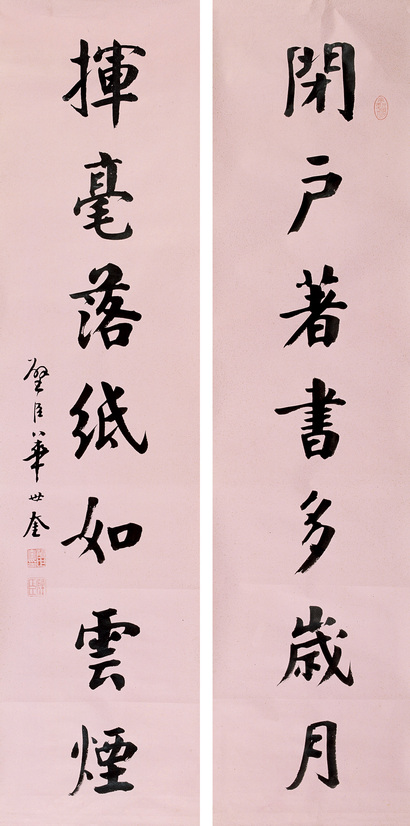 閉戶著書多歲月
揮毫落紙如雲煙
璧臣華世奎